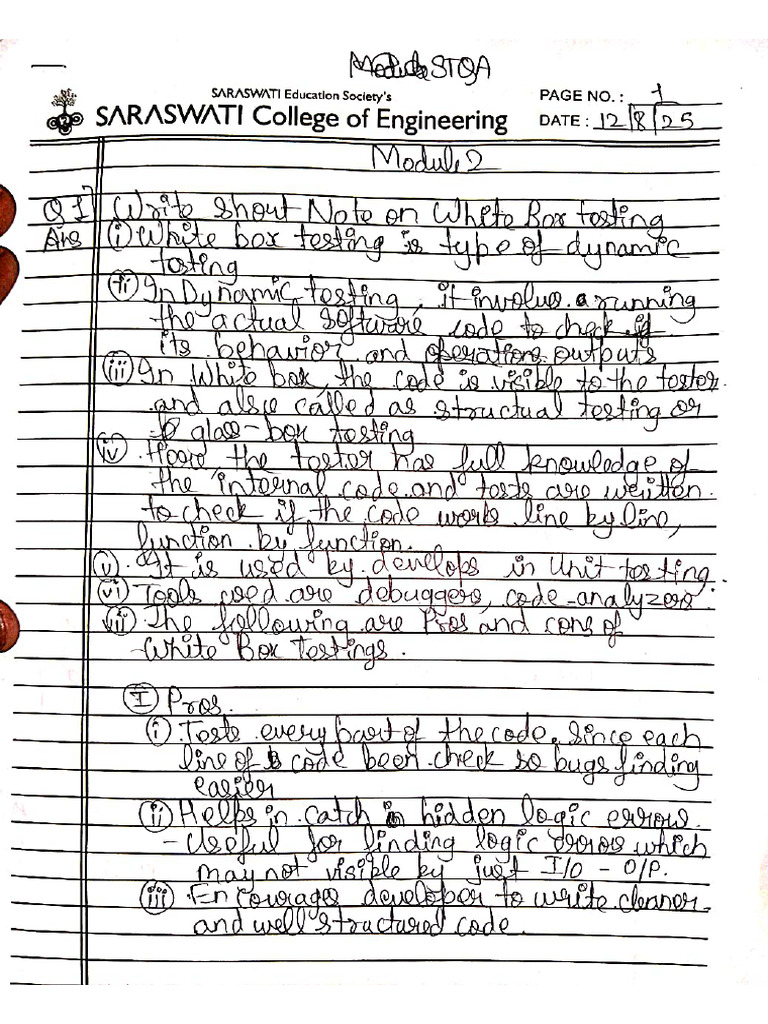 STQA
SARASWATI Education Society's
SARASWATI College of Engineering
PAGE NO. : 1
DATE : 12/8/25
Module 2
Q1) Write Short Note on White Box testing
Ans (i) White box testing is type of dynamic
testing
(ii) In Dynamic testing, it involves running
the actual software code to check if
its behavior and operations outputs
(iii) In White box, the code is visible to the tester
and also called as structual testing or
glass-box testing
(iv) Here, the tester has full knowledge of
the internal code and tests are written
to check if the code works line by line,
function by function.
(v) It is used by develops in Unit testing.
(vi) Tools used are debuggers, code-analyzers
(vii) The following are Pros and cons of
White Box Testings.
(I) Pros.
(i) Tests every part of the code, since each
line of code been check so bugs finding
easier
(ii) Helps in catch in hidden logic errors.
- Useful for finding logic errors which
may not visible by just I/O - O/P.
(iii) Encourages developer to write cleaner
and well structured code.